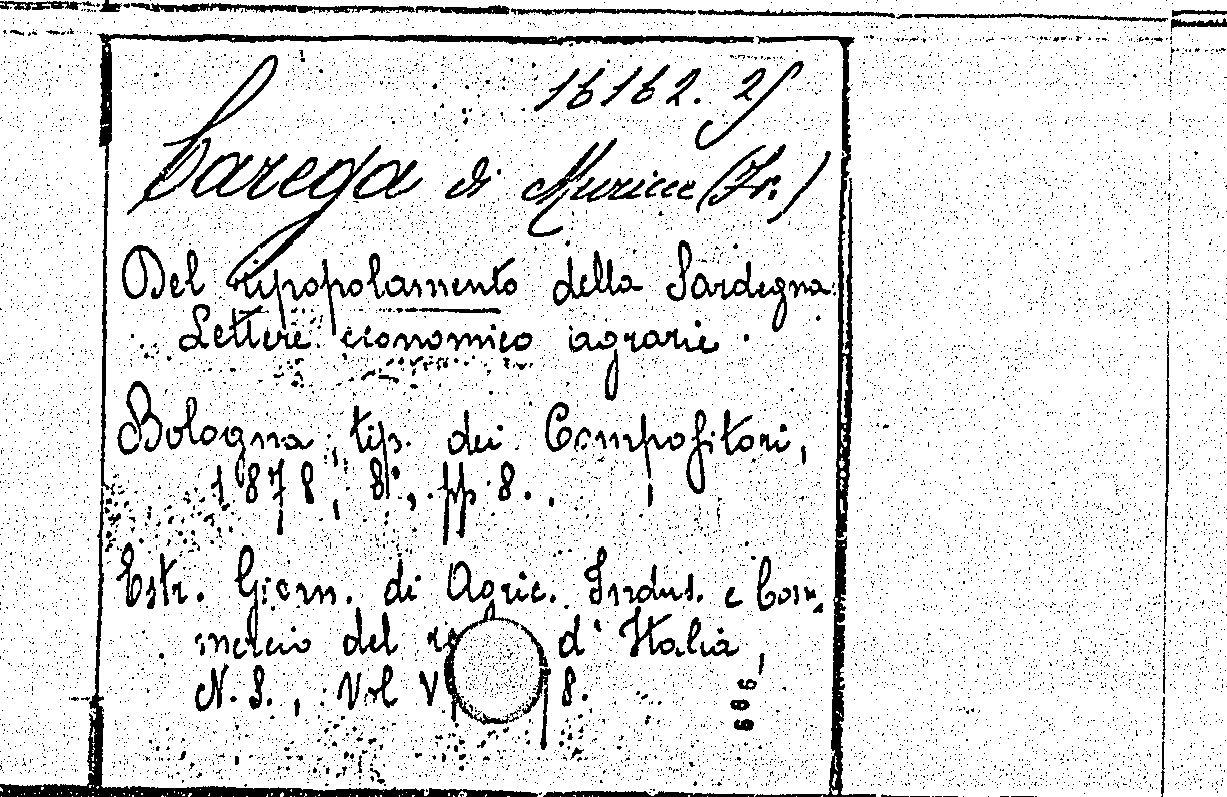 16162. 25
Carega di Muricce (Fr.)
Del ripopolamento della Sardegna.
Lettere economico agrarie.
Bologna, tip. dei Compositori,
1878, 8°, pp 8.
Estr. Giorn. di Agric. Indus. e Com-
mercio del re d'Italia,
N. S., Vol V 8.
686